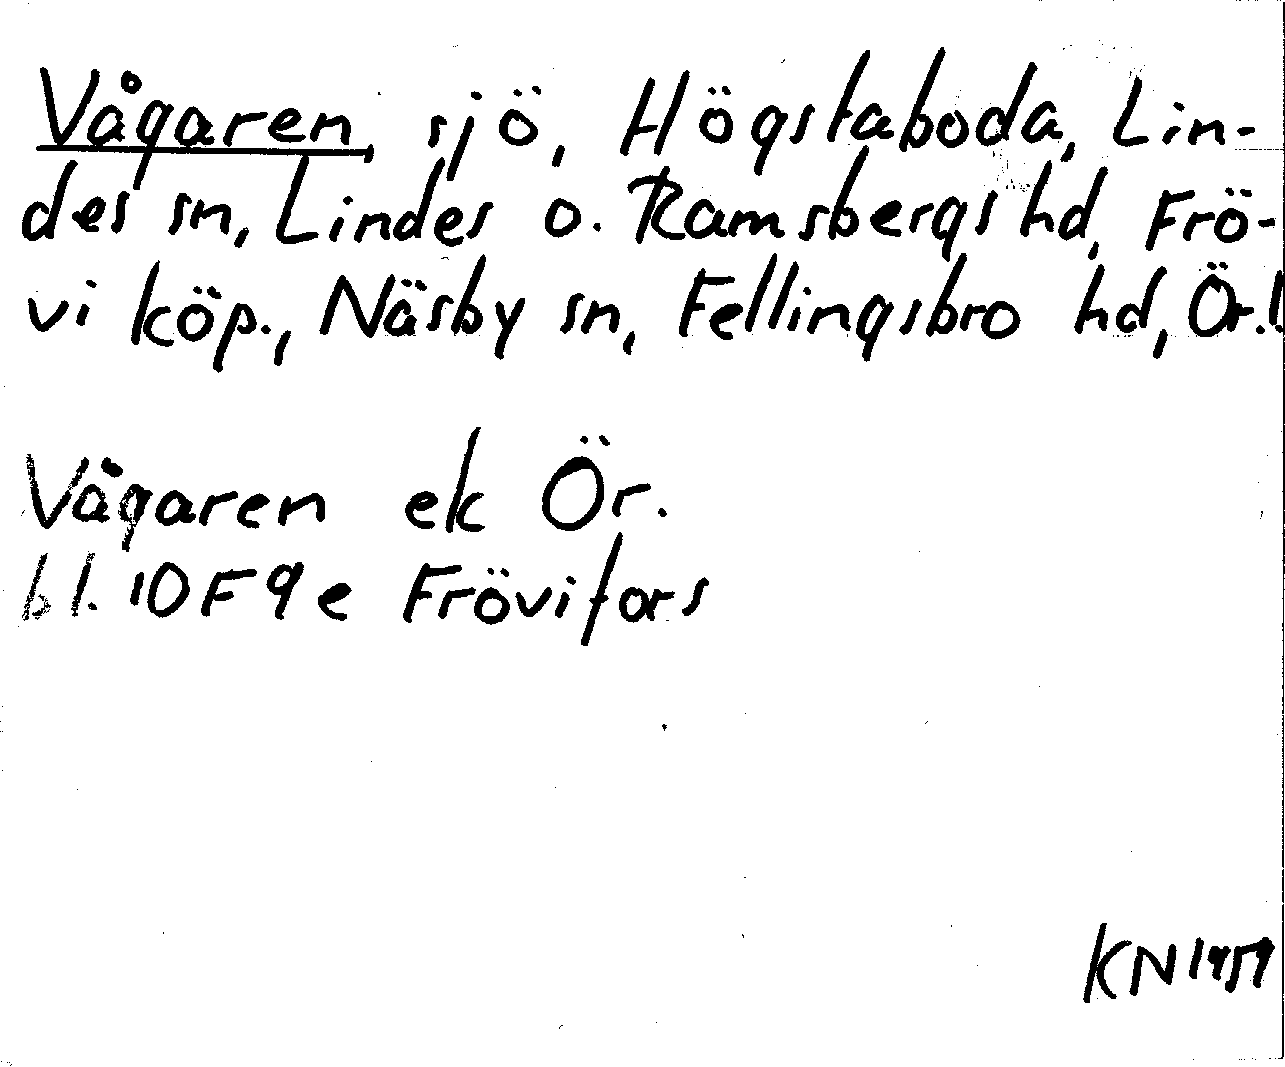 Vågaren, sjö, Högstaboda, Lin-
des sn, Lindes o. Ramsbergs hd, Frö-
vi köp., Näsby sn, Fellingsbro hd, Ör.l.
Vågaren ek Ör.
bl. 10F9e Frövifors
KN 1959